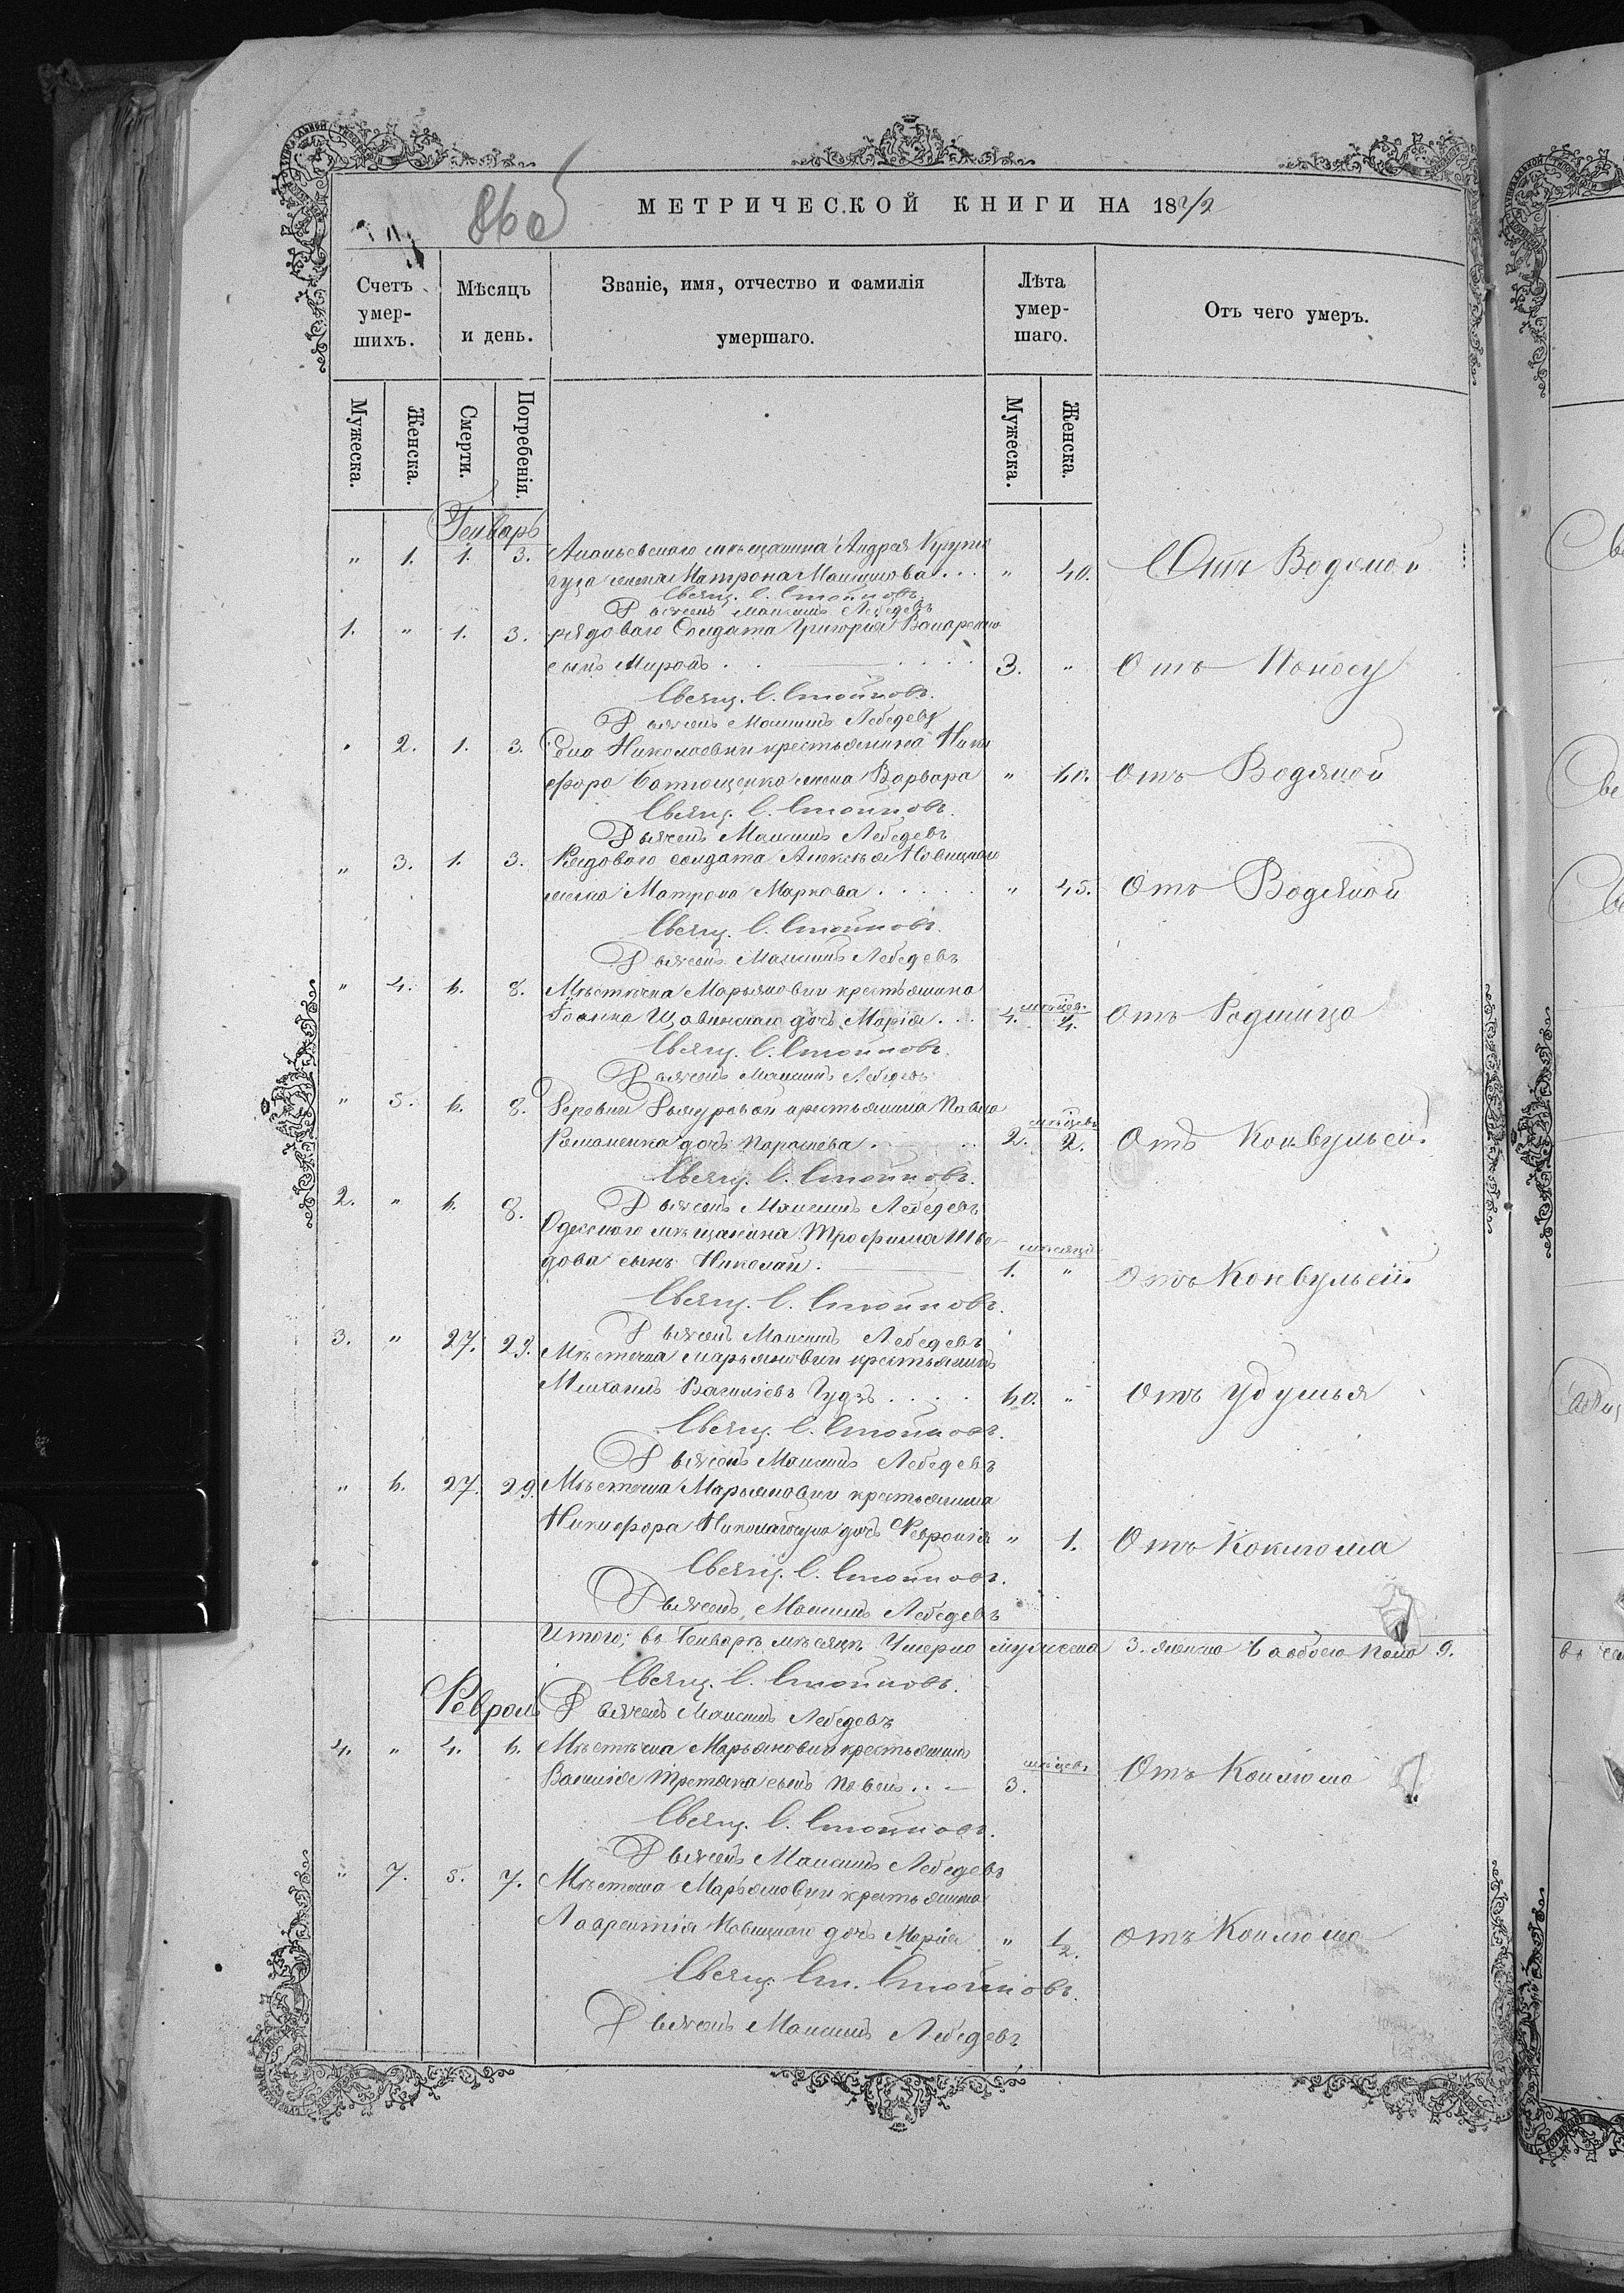 860
МЕТРИЧЕСКОЙ КНИГИ НА 1872
Счетъ умер-шихъ.
Мѣсяцъ и день.
Званіе, имя, отчество и фамилія умершаго.
Лѣта умер-шаго.
Отъ чего умеръ.
Мужеска. Женска. Смерти. Погребенія. Мужеска. Женска.
Генварь
" 1. 1. 3. Ананьевского мѣщанина Андрея
жена Матрона " 40. Отъ Водяной
Свящ. С. Стойковъ.
Дьячекъ Максимъ Лебедевъ
1. " 1. 3. рядоваго Солдата Григорія
сынъ Миронъ 3. " Отъ Поносу
Свящ. С. Стойковъ.
Дьячекъ Максимъ Лебедевъ
2. 1. 3. Села Николаевки крестьянина Ники
фора жена Варвара " 60. Отъ Водяной
Свящ. С. Стойковъ.
Дьячекъ Максимъ Лебедевъ
" 3. 1. 3. Рядового солдата Алексѣя Новицкаго
жена Матрона Маркова " 45. Отъ Водяной
Свящ. С. Стойковъ.
Дьячекъ Максимъ Лебедевъ
" 4. 6. 8. Мѣстечка Марьяновки крестьянина
Іоанна дочь Марія 4. мѣсцев. 4. Отъ Родимца
Свящ. С. Стойковъ.
Дьячекъ Максимъ Лебедевъ
" 5. 6. 8. Деревни крестьянина Павла
Романенка дочь Параскева 2. мѣсцевъ 2. Отъ Конвульсей.
Свящ. С. Стойковъ.
Дьячекъ Максимъ Лебедевъ
2. " 6. 8. Одесского мѣщанина Трофима Шве
дова сынъ Николай. 1. мѣсяцъ " Отъ Конвульсей.
Свящ. С. Стойковъ.
Дьячекъ Максимъ Лебедевъ
3. " 27. 29. Мѣстечка Марьяновки крестьянинъ
Михаилъ Василіевъ Гудзъ 60. " Отъ удушья
Свящ. С. Стойковъ.
Дьячекъ Максимъ Лебедевъ
" 6. 27. 29. Мѣстечка Марьяновки крестьянина
Никифора дочь Февронія " 1. Отъ Коклюша
Свящ. С. Стойковъ.
Дьячекъ Максимъ Лебедевъ
Итого; въ Генварѣ мѣсяцѣ Умерло мужеска 3. женска 6 а обоего пола 9.
Свящ. С. Стойковъ.
Февраль
Дьячекъ Максимъ Лебедевъ
4. " 4. 6. Мѣстечка Марьяновки крестьянина
Василія Третяка сынъ Павелъ 3. мѣсцев. Отъ Коклюша
Свящ. С. Стойковъ.
Дьячекъ Максимъ Лебедевъ
" 7. 5. 7. Мѣстечка Марьяновки крестьянина
Лаврентія Новицкаго дочь Марія " 1/2. Отъ Коклюша
Свящ. Ст. Стойковъ.
Дьячекъ Максимъ Лебедевъ